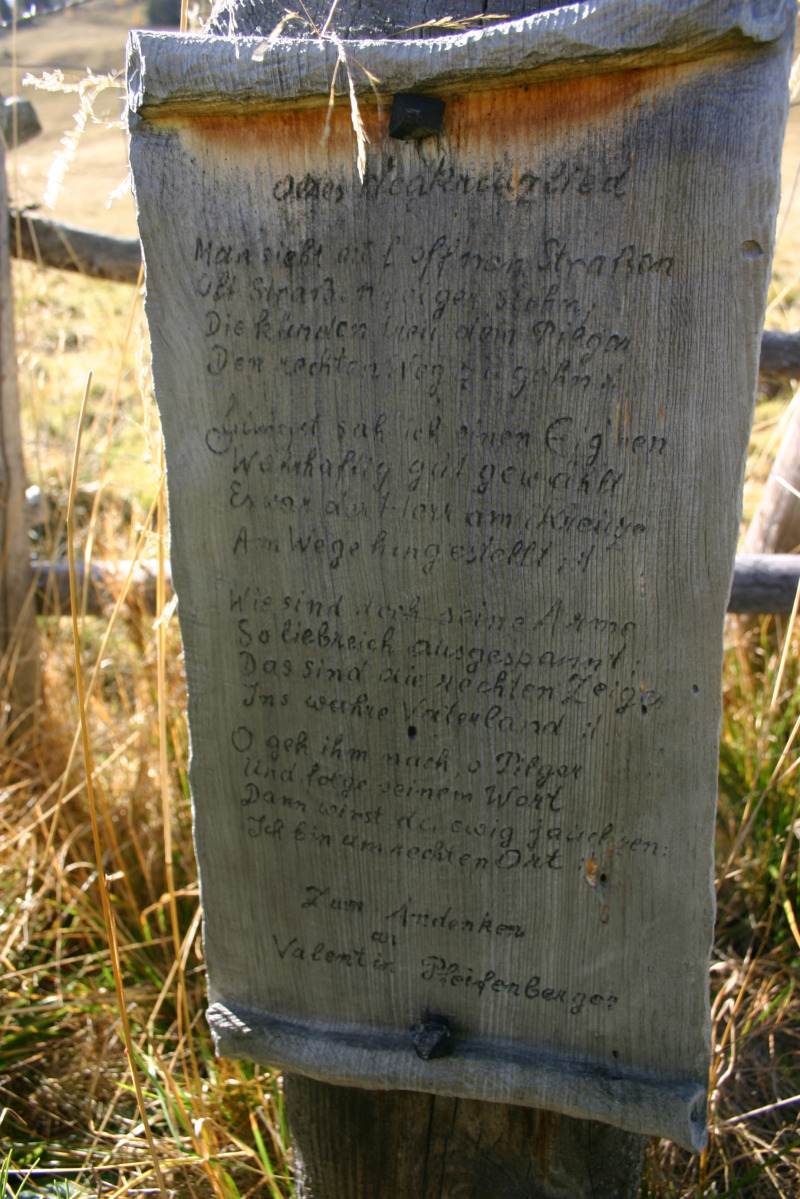 Das Wegkreuzlied
Man sieht auf off'nen Straßen
Oft Straßenzeiger stehn,
Die künden treu dem Pilger
Den rechten Weg zu gehn :|
Jüngst sah ich einen Eig'nen
Wahrhaftig gut gewählt
Es war der Herr am Kreuze
Am Wege hingestellt :|
Wie sind doch seine Arme
So liebreich ausgespannt;
Das sind die rechten Zeiger
Ins wahre Vaterland :|
O geh ihm nach, o Pilger
Und folge seinem Wort
Dann wirst du ewig jauchzen:
Ich bin am rechten Ort :|
Zum Andenken
an
Valentin Pfeifenberger